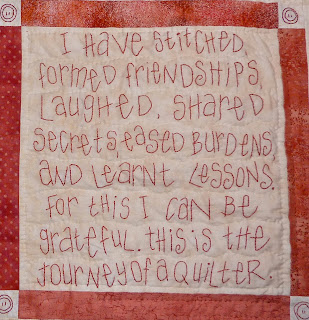 I HAVE STITCHED,
FORMED FRIENDSHIPS,
LAUGHED, SHARED
SECRETS, EASED BURDENS
AND LEARNT LESSONS.
FOR THIS I CAN BE
GRATEFUL. THIS IS THE
JOURNEY OF A QUILTER.